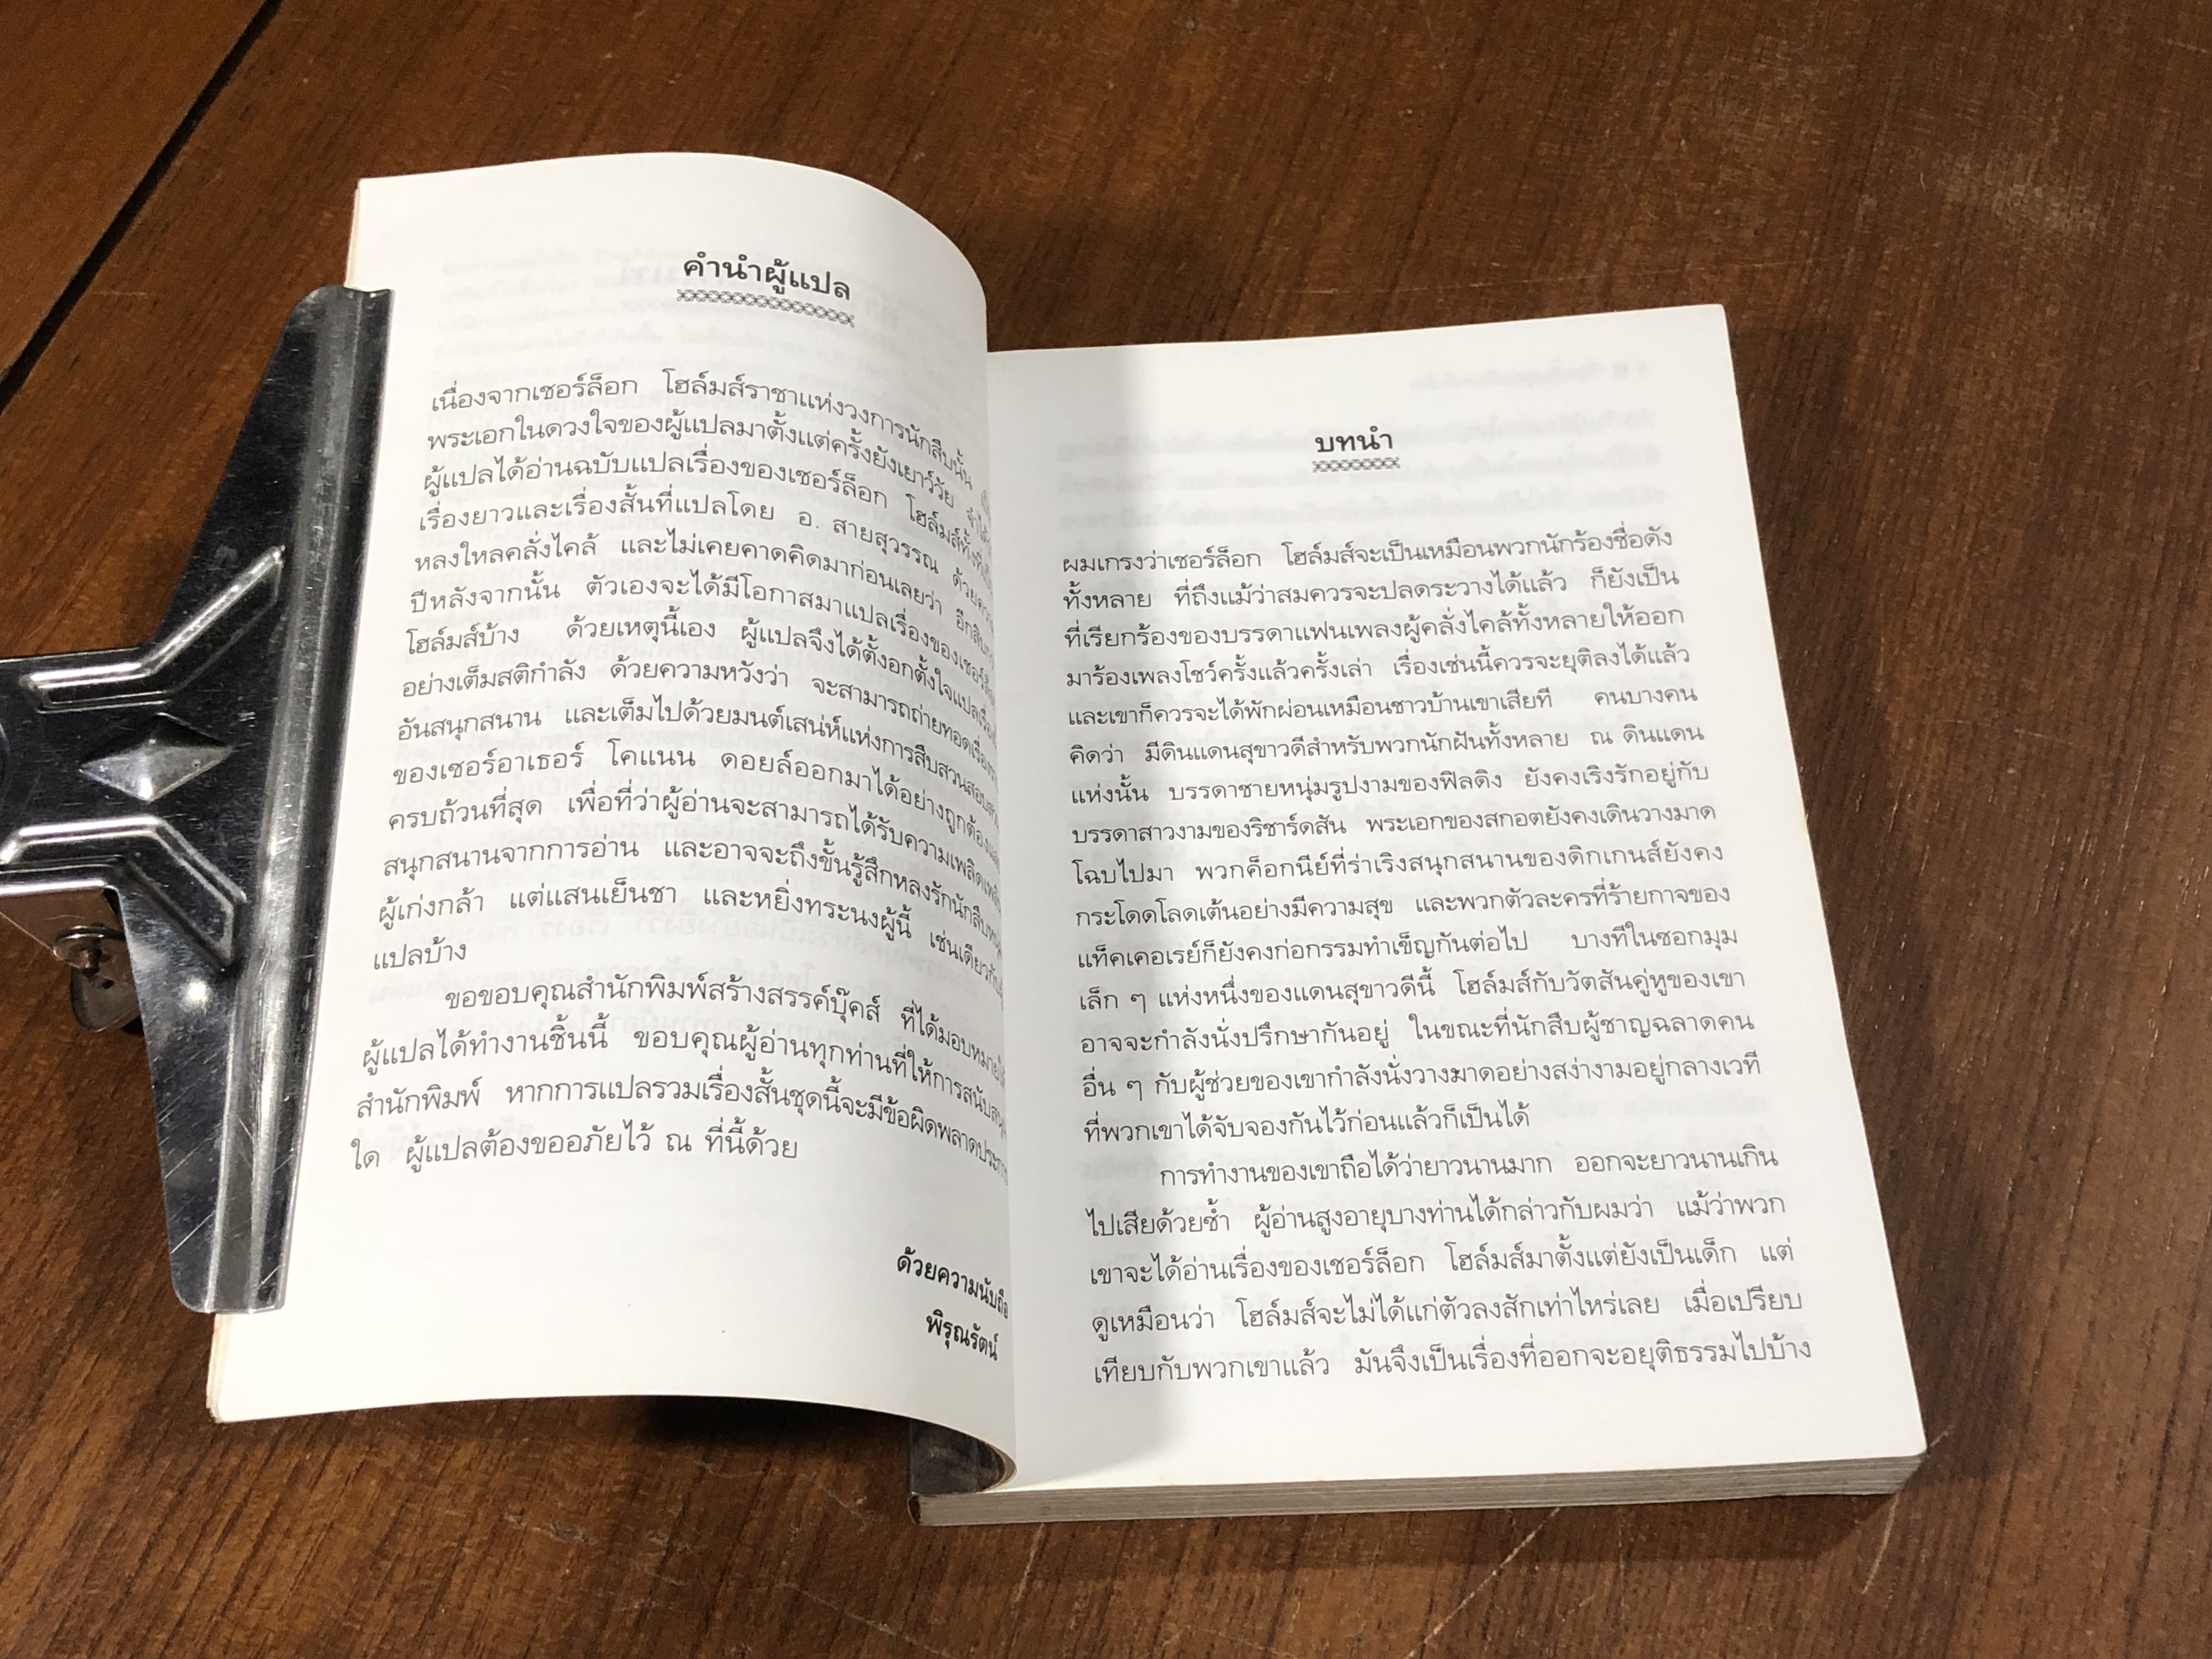 คำนำผู้แปล
เนื่องจากเชอร์ล็อก โฮล์มส์ราชาแห่งวงการนักสืบนั้น
พระเอกในดวงใจของผู้แปลมาตั้งแต่ครั้งยังเยาว์วัย จำได้
ผู้แปลได้อ่านฉบับแปลเรื่องของเชอร์ล็อก โฮล์มส์ทั้งที่
เรื่องยาวและเรื่องสั้นที่แปลโดย อ. สายสุวรรณ ด้วย
หลงใหลคลั่งไคล้ และไม่เคยคาดคิดมาก่อนเลยว่า
ปีหลังจากนั้น ตัวเองจะได้มีโอกาสมาแปลเรื่องของเชอร์ล็อก
โฮล์มส์บ้าง ด้วยเหตุนี้เอง ผู้แปลจึงได้ตั้งอกตั้งใจแปล
อย่างเต็มสติกำลัง ด้วยความหวังว่า จะสามารถถ่ายทอดเรื่องราว
อันสนุกสนาน และเต็มไปด้วยมนต์เสน่ห์แห่งการสืบสวนสอบสวน
ของเซอร์อาเธอร์ โคแนน ดอยล์ออกมาได้อย่างถูกต้องและ
ครบถ้วนที่สุด เพื่อที่ว่าผู้อ่านจะสามารถได้รับความเพลิดเพลิน
สนุกสนานจากการอ่าน และอาจจะถึงขั้นรู้สึกหลงรักนักสืบหนุ่ม
ผู้เก่งกล้า แต่แสนเย็นชา และหยิ่งทระนงผู้นี้ เช่นเดียวกับ
แปลบ้าง
ขอขอบคุณสำนักพิมพ์สร้างสรรค์บุ๊คส์ ที่ได้มอบหมายให้
ผู้แปลได้ทำงานชิ้นนี้ ขอบคุณผู้อ่านทุกท่านที่ให้การสนับสนุน
สำนักพิมพ์ หากการแปลรวมเรื่องสั้นชุดนี้จะมีข้อผิดพลาดประการ
ใด ผู้แปลต้องขออภัยไว้ ณ ที่นี้ด้วย
ด้วยความนับถือ
พิรุณรัตน์
บทนำ
ผมเกรงว่าเชอร์ล็อก โฮล์มส์จะเป็นเหมือนพวกนักร้องชื่อดัง
ทั้งหลาย ที่ถึงแม้ว่าสมควรจะปลดระวางได้แล้ว ก็ยังเป็น
ที่เรียกร้องของบรรดาแฟนเพลงผู้คลั่งไคล้ทั้งหลายให้ออก
มาร้องเพลงโชว์ครั้งแล้วครั้งเล่า เรื่องเช่นนี้ควรจะยุติลงได้แล้ว
และเขาก็ควรจะได้พักผ่อนเหมือนชาวบ้านเขาเสียที คนบางคน
คิดว่า มีดินแดนสุขาวดีสำหรับพวกนักฝันทั้งหลาย ณ ดินแดน
แห่งนั้น บรรดาชายหนุ่มรูปงามของฟิลดิง ยังคงเริงรักอยู่กับ
บรรดาสาวงามของริชาร์ดสัน พระเอกของสกอตยังคงเดินวางมาด
โฉบไปมา พวกค็อกนีย์ที่ร่าเริงสนุกสนานของดิกเกนส์ยังคง
กระโดดโลดเต้นอย่างมีความสุข และพวกตัวละครที่ร้ายกาจของ
แท็คเคอเรย์ก็ยังคงก่อกรรมทำเข็ญกันต่อไป บางทีในซอกมุม
เล็ก ๆ แห่งหนึ่งของแดนสุขาวดีนี้ โฮล์มส์กับวัตสันคู่หูของเขา
อาจจะกำลังนั่งปรึกษากันอยู่ ในขณะที่นักสืบผู้ชาญฉลาดคน
อื่น ๆ กับผู้ช่วยของเขากำลังนั่งวางมาดอย่างสง่างามอยู่กลางเวที
ที่พวกเขาได้จับจองกันไว้ก่อนแล้วก็เป็นได้
การทำงานของเขาถือได้ว่ายาวนานมาก ออกจะยาวนานเกิน
ไปเสียด้วยซ้ำ ผู้อ่านสูงอายุบางท่านได้กล่าวกับผมว่า แม้ว่าพวก
เขาจะได้อ่านเรื่องของเชอร์ล็อก โฮล์มส์มาตั้งแต่ยังเป็นเด็ก แต่
ดูเหมือนว่า โฮล์มส์จะไม่ได้แก่ตัวลงสักเท่าไหร่เลย เมื่อเปรียบ
เทียบกับพวกเขาแล้ว มันจึงเป็นเรื่องที่ออกจะอยุติธรรมไปบ้าง